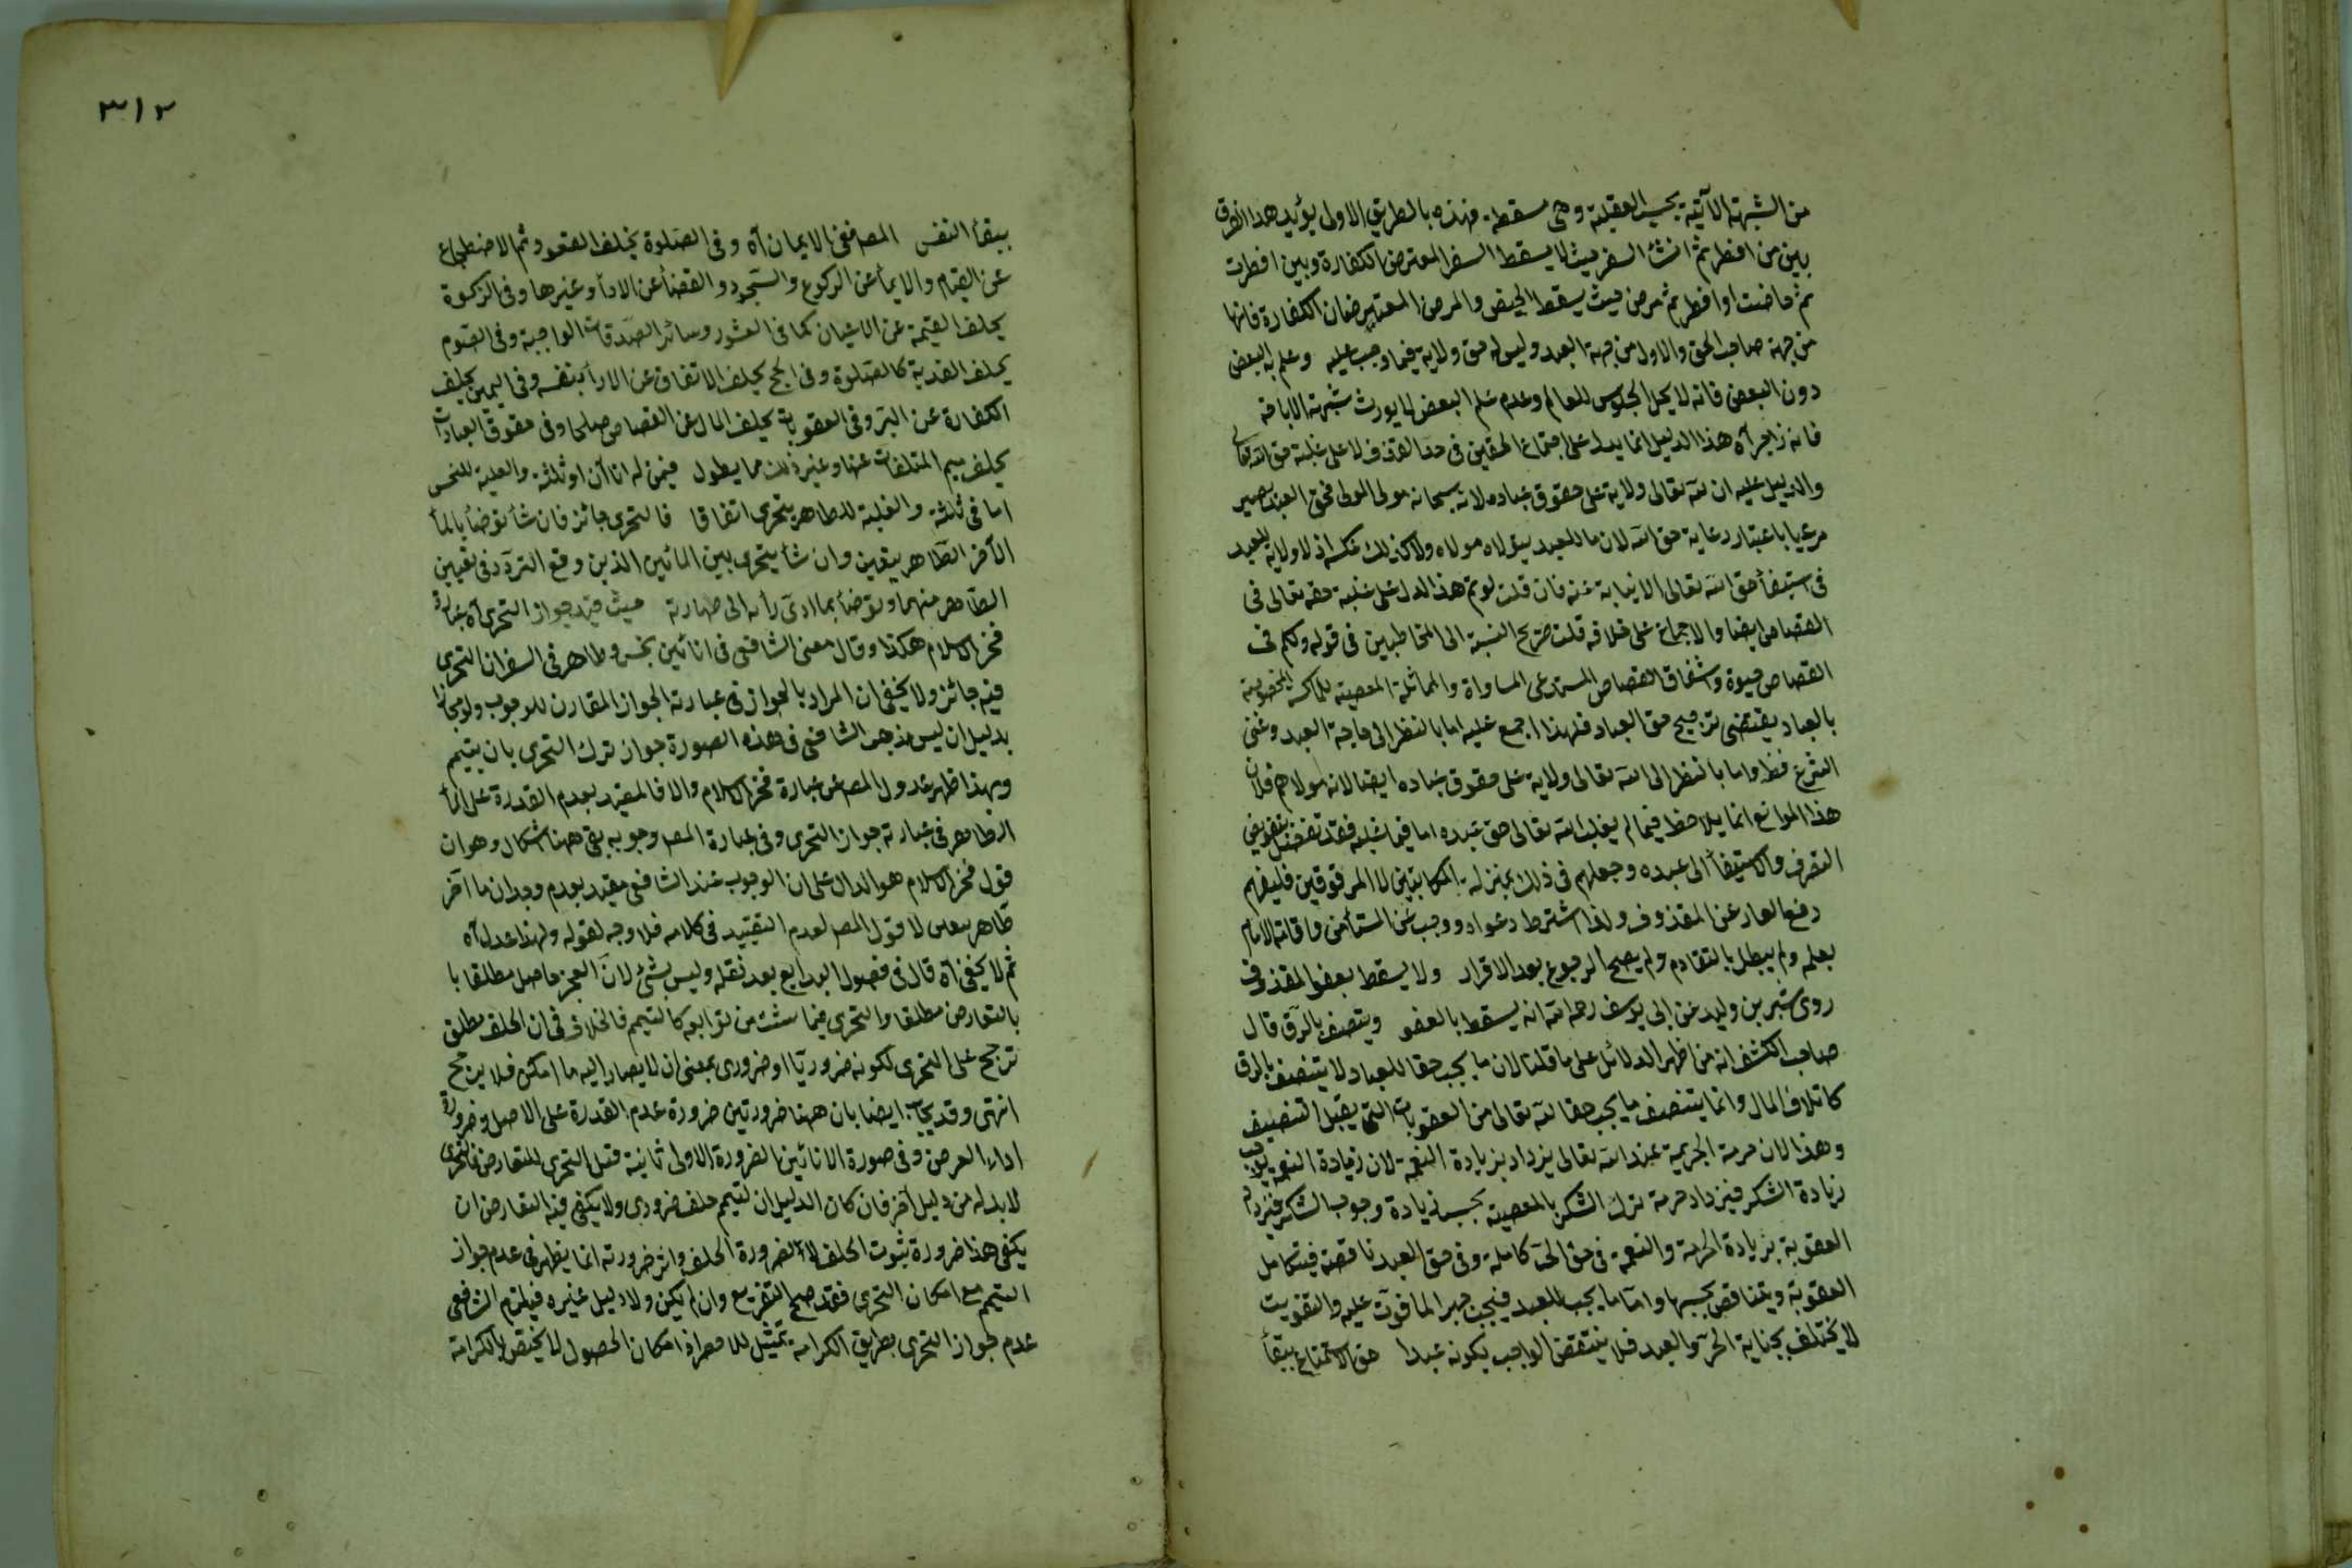 من الشبهة الآتية بحسب العقلية وهي مسقطة فهذه بالطريق الاولى يؤيد هذا الفرق
بين من افطر ثم انشأ السفر حيث لا يسقط السفر المعترض الكفارة وبين افطرت
ثم حاضت او افطر ثم مرض حيث يسقط الحيض والمرض المعتبر ضمان الكفارة فانها
من جهة صاحب الحق والاول من جهة العبد وليس له حق ولاية فيما وجب عليه وعلم به البعض
دون البعض فانه لا يحل الجلوس للعالم وعدم علم البعض لا يورث شبهة الاباحة
فانه زاجر آه هذا الدليل انما يدل على اجتماع الحقين في حد القذف لا على غلبة حق الله تعالى
والدليل عليه ان لله تعالى ولاية على حقوق عباده لانه سبحانه مولى المولى فحق العبد يصير
مرعيا باعتبار رعاية حق الله لان ما للعبد يتولاه مولاه ولا كذلك عكسه اذ لا ولاية للعبد
في استيفأ حق الله تعالى الا نيابة عنه فان قلت لو تم هذا لدل على غلبة حقه تعالى في
القصاص ايضا والاجماع على خلافه قلت صريح النسبة الى المخاطبين في قوله ولكم في
القصاص حيوة واشتقاق القصاص المستدعى المساواة والمماثلة المخصوصة
بالعباد يقتضى ترجيح حق العباد فلهذا اجمع عليه اما بالنظر الى حاجة العبد وغنى
الشرع فظ واما بالنظر الى الله تعالى ولاية على حقوق عباده ايضا لانه مولاهم فلان
هذا الموانع انما يلاحظ فيما لم يغلب الله تعالى حق عبده اما فيما غلبه فقد تفضل بتفويض
التصرف والاستيفأ الى عبده وجعلهم في ذلك بمنزلة المكاتبين لا المرقوقين فليفهم
دفع العار عن المقذوف ولذا اشترط دعواه ووجب على المستأمن واقامه الامام
بعلمه ولم يبطل بالتقادم ولم يصح الرجوع بعد الاقرار ولا يسقط بعفو المقذوف
روى بشر بن وليد عن ابى يوسف رحمه الله انه يسقط بالعفو ويتنصف بالرق قال
صاحب الكشف انه من اظهر الدلائل على ما قلنا لان ما يجب حقا للعباد لا يتنصف بالرق
كاتلاف المال وانما يتنصف ما يجب حقا لله تعالى من العقوبات التى يقبل التنصيف
وهذا لان حرمة الجريمة عند الله تعالى يزداد بزيادة النعمة لان زيادة النعمة يوجب
زيادة الشكر فيزداد حرمة ترك الشكر بالمعصية بحسب زيادة وجوب الشكر فيزداد
العقوبة بزيادة الحرمة والنعمة في حق الحر كاملة وفي حق العبد ناقصة فيتكامل
العقوبة ويتناقص بحسبها واما ما يجب للعبد فيجب جبرا لما فوت عليه والتفويت
لا يختلف بجناية الحر والعبد فلا ينتقص الواجب بكونه عبدا حق الاستمتاع ببقأ
٣١٢
ببقأ النفس المص ففى الايمان آه وفى الصلوة يخلف القعود ثم الاضطجاع
عن القيام والايمأ عن الركوع والسجود والقضأ عن الادأ وغيرها وفى الزكوة
يخلف القيمة عن الاعيان كما فى العشور وسائر الصدقات الواجبة وفى الصوم
يخلف الفدية كالصلوة وفى الحج يخلف الانفاق عن الادأ بنفسه وفى اليمين يخلف
الكفارة عن البر وفى العقوبات يخلف المال عن القصاص صلحا وفى حقوق العباد
يخلف قيم المتلفات عنها وغير ذلك مما يطول فيمن له اناآن او ثلثة والغلبة للنجس
اما فى ثلثة والغلبة للطاهر يتحرى اتفاقا فالتحرى جائز فان شأ توضأ بالمأ
الآخر الطاهر بيقين وان شأ يتحرى بين المائين الذين وقع التردد فى تعيين
الطاهر منهما وتوضأ بما ادى رأيه الى طهارته حيث قيد جواز التحرى آه عبارة
فخر الاسلام هكذا وقال معنى الشافعى فى انائين نجس وطاهر فى السفر ان التحرى
فيه جائز ولا يخفى ان المراد بالجواز فى عبارته الجواز المقارن للوجوب ولو مجازا
بدليل ان ليس مذهب الشافعى فى هذه الصورة جواز ترك التحرى بان يتيمم
وبهذا ظهر عدول المص عن عبارة فخر الاسلام والا فالمقيد بعدم القدرة على المأ
الطاهر فى عبارته جواز التحرى وفى عبارة المص وجوبه بقى ههنا اشكال وهو ان
قول فخر الاسلام هو الدال على ان الوجوب عند الشافعى مقيد بعدم وجدان ما آخر
طاهر بيقين لا قول المص لعدم التقييد فى كلامه فلا وجه لقوله ولهذا عدل آه
ثم لا يخفى آه قال فى فصول البدايع بعد نقله وليس بشئ لان العجز حاصل مطلقا با
بالتعارض مطلقا والتحرى فيما سئت من توابعه كالتيمم فالخلاف فى ان الخلف مطلق
ترجح على التحرى لكونه ضروريا او ضرورى بمعنى ان لا يصار اليه ما امكن فلا يرجح
انتهى وقد يجاب ايضا بان ههنا ضرورتين ضرورة عدم القدرة على الاصل وضرورة
اداء الفرض وفى صورة الانائين الضرورة الاولى ثانية قبل التحرى للتعارض فالتحرى
لا بد له من دليل آخر فان كان الدليل ان التيمم خلف ضرورى ولا يكفى فيه التعارض ان
يكفى هذا ضرورة ثبوت الخلف لا لضرورة الخلف واثر ضرورته انما يظهر فى عدم جواز
التيمم مع امكان التحرى فقد صح التفريع وان لم يكن ولا دليل غيره فيلزم الشافعى
عدم لجواز التحرى بطريق الكرامة تمثيل للا فطراذ امكان الحصول لا يختص بالكرامة